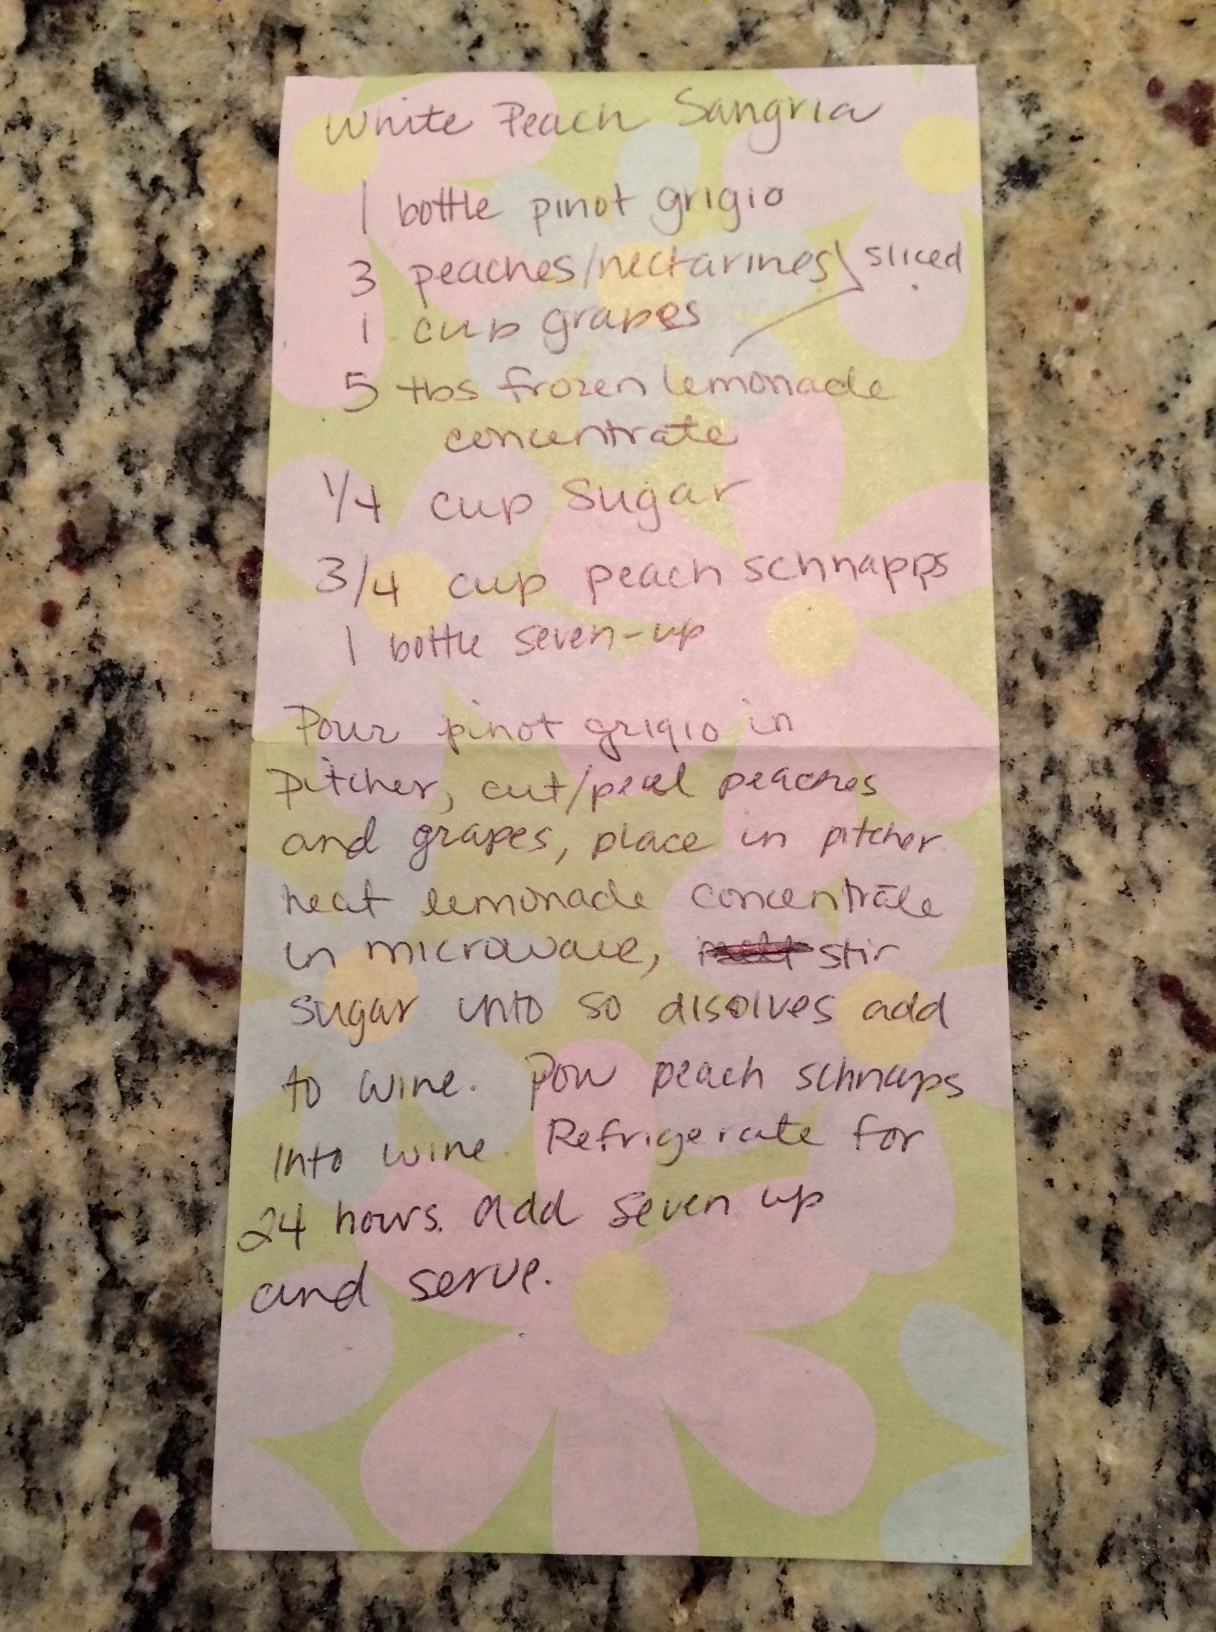 White Peach Sangria
1 bottle pinot grigio
3 peaches/nectarines sliced
1 cup grapes
5 tbs frozen lemonade
concentrate
1/4 cup sugar
3/4 cup peach schnapps
1 bottle seven-up
Pour pinot grigio in
pitcher, cut/peel peaches
and grapes, place in pitcher
heat lemonade concentrate
in microwave, stir
sugar into so disolves add
to wine. Pour peach schnaps
into wine. Refrigerate for
24 hours. Add seven up
and serve.